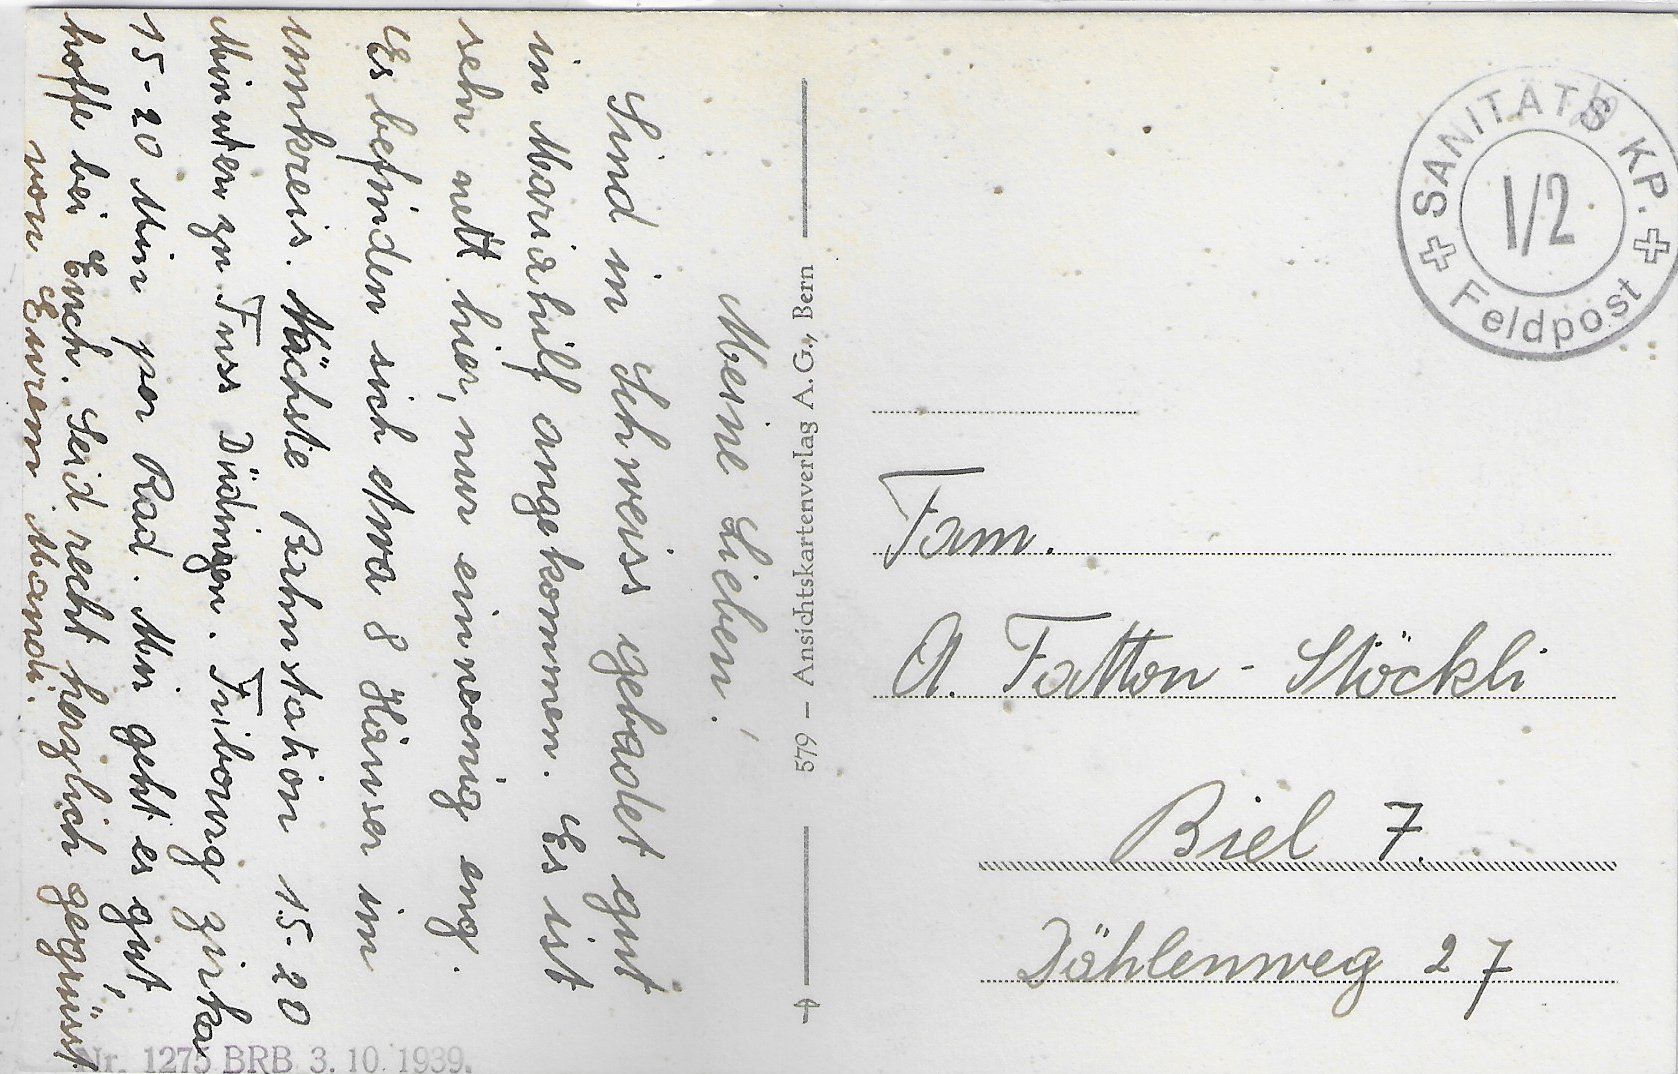 Meine Lieben!
Sind in Schweiss gebadet gut
in Mariahilf angekommen. Es ist
sehr nett hier, nur ein wenig eng.
Es befinden sich etwa 8 Häuser im
umkreis. Nächste Bahnstation 15-20
Minuten zu Fuss Düdingen. Fribourg zirka
15-20 Min per Rad. Mir geht es gut,
hoffe bei Euch. Seid recht herzlich gegrüsst
von Eurem Mandi.
579 – Ansichtskartenverlag A.G., Bern
SANITÄTS KP.
I/2
Feldpost
Fam.
A. Fatton - Stöckli
Biel 7.
Dählenweg 27
Nr. 1275 BRB 3. 10. 1939.